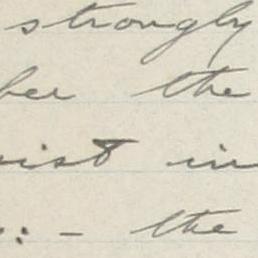 strongly
ber the
ist in
:- the